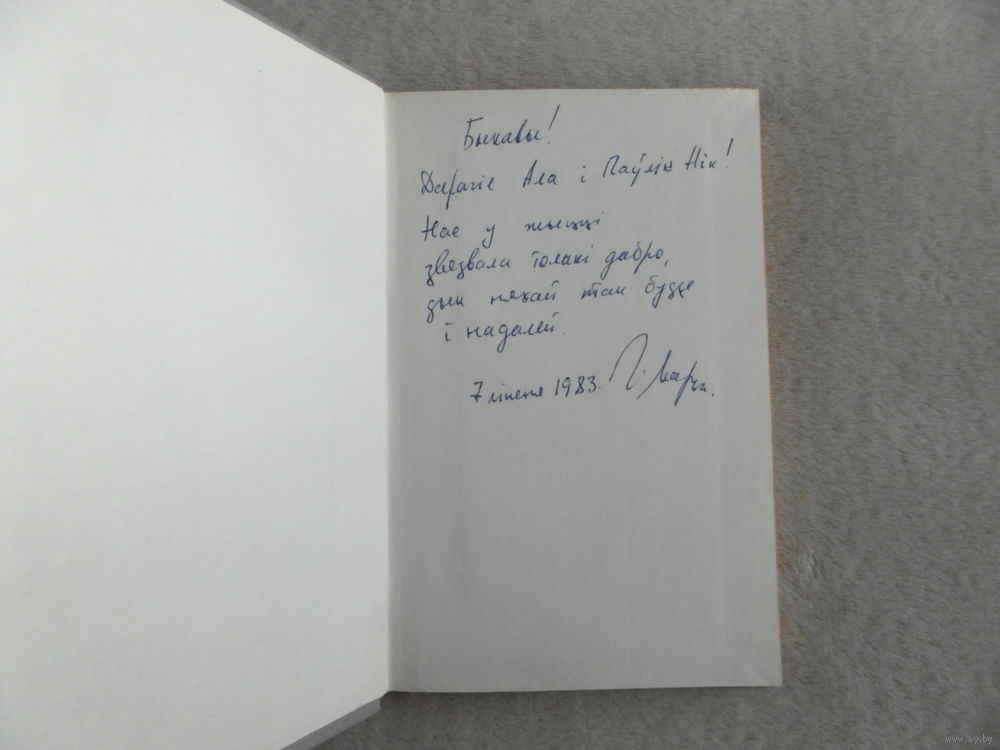 Быкавы!
Дарагія Ала і Паўлік Нік!
Нас у жыцці
звязвала толькі дабро,
дык няхай так будзе
і надалей.
7 ліпеня 1983. Г.
www.ay.by